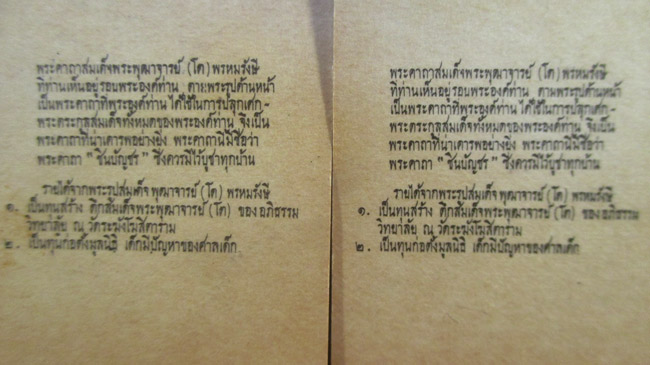 พระคาถาสมเด็จพระพุฒาจารย์ (โต) พรหมรังษี
ที่ท่านเห็นอยู่รอบพระองค์ท่าน ตามพระรูปด้านหน้า
เป็นพระคาถาที่พระองค์ท่าน ได้ใช้ในการปลุกเศก-
พระตระกูลสมเด็จทั้งหมดของพระองค์ท่าน จึงเป็น
พระคาถาที่น่าเคารพอย่างยิ่ง พระคาถานี้มีชื่อว่า
พระคาถา " ชินบัญชร " ซึ่งควรมีไว้บูชาทุกบ้าน
รายได้จากพระรูปสมเด็จ พุฒาจารย์ (โต) พรหมรังษี
๑. เป็นทุนสร้าง ตึกสมเด็จพระพุฒาจารย์ (โต) ของ อภิธรรม
วิทยาลัย ณ วัดระฆังโฆสิตาราม
๒. เป็นทุนก่อตั้งมูลนิธิ เด็กมีปัญหาของศาลเด็ก
พระคาถาสมเด็จพระพุฒาจารย์ (โต) พรหมรังษี
ที่ท่านเห็นอยู่รอบพระองค์ท่าน ตามพระรูปด้านหน้า
เป็นพระคาถาที่พระองค์ท่าน ได้ใช้ในการปลุกเศก-
พระตระกูลสมเด็จทั้งหมดของพระองค์ท่าน จึงเป็น
พระคาถาที่น่าเคารพอย่างยิ่ง พระคาถานี้มีชื่อว่า
พระคาถา " ชินบัญชร " ซึ่งควรมีไว้บูชาทุกบ้าน
รายได้จากพระรูปสมเด็จ พุฒาจารย์ (โต) พรหมรังษี
๑. เป็นทุนสร้าง ตึกสมเด็จพระพุฒาจารย์ (โต) ของ อภิธรรม
วิทยาลัย ณ วัดระฆังโฆสิตาราม
๒. เป็นทุนก่อตั้งมูลนิธิ เด็กมีปัญหาของศาลเด็ก